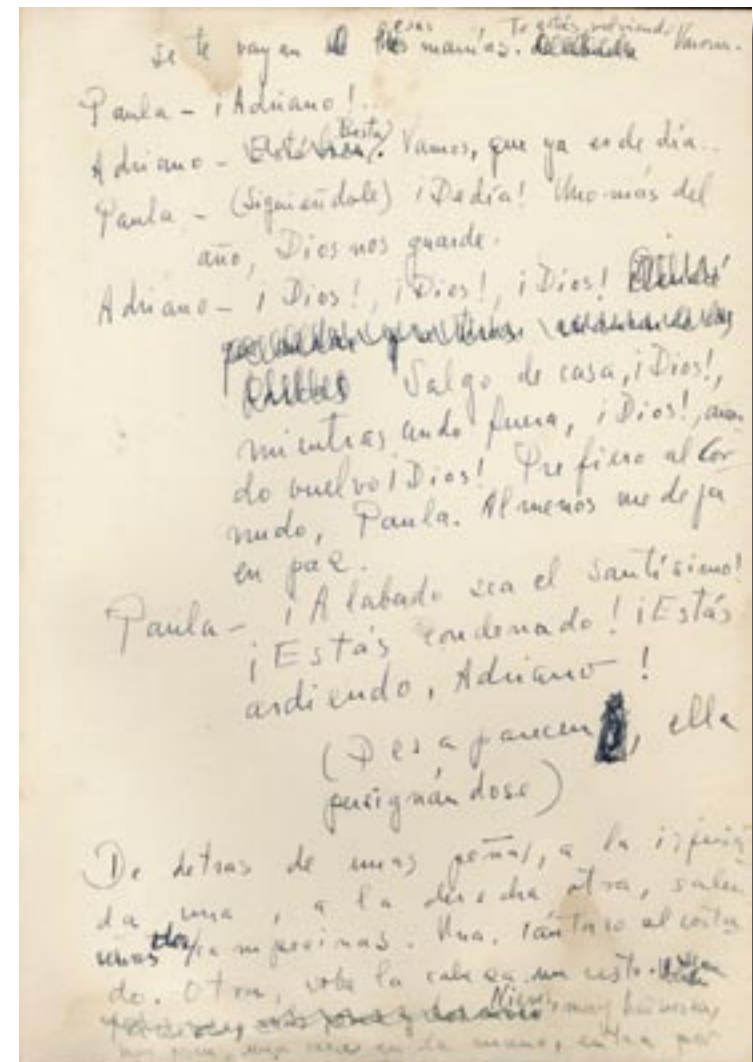 se te vayan esas manías. Te estás volviendo
Paula - ¡Adriano!...
Adriano - Basta. Vamos, que ya es de día..
Paula - (Siguiéndole) ¡De día! Uno más del
año, Dios nos guarde.
Adriano - ¡Dios!, ¡Dios!, ¡Dios!
Salgo de casa, ¡Dios!,
mientras ando fuera, ¡Dios!, cuan
do vuelvo ¡Dios! Prefiero al Cor
nudo, Paula. Al menos me deja
en paz.
Paula - ¡Alabado sea el Santísimo!
¡Estás condenado! ¡Estás
ardiendo, Adriano!
(Desaparecen, ella
persignándose)
De detras de unas peñas, a la izquier
da una, a la derecha otra, salen
dos campesinas. Una, cántaro al costa
do. Otra, sobre la cabeza un cesto.
Nieves, muy hermosa,
en la mano, entra por